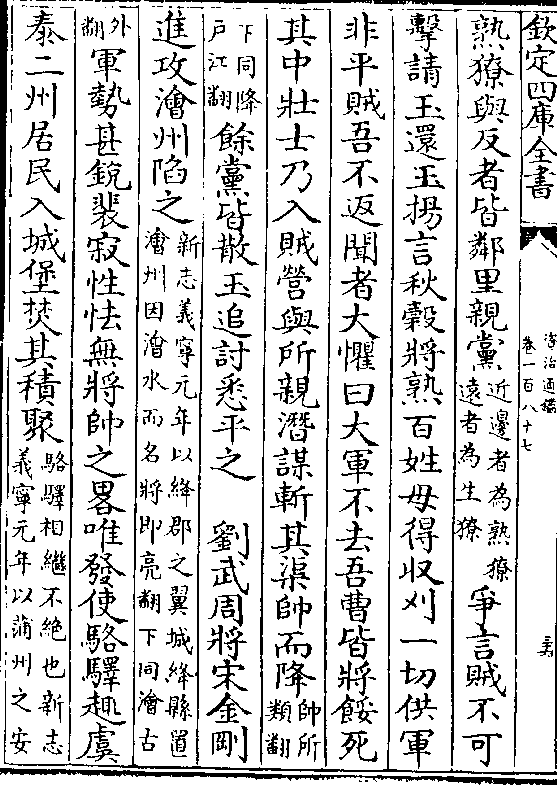 欽定四庫全書
資治通鑑
卷一百八十七
熟獠與反者皆鄰里親黨近邊者為熟獠遠者為生獠爭言賊不可
擊請玉還玉揚言秋穀將熟百姓毋得收刈一切供軍
非平賊吾不返聞者大懼曰大軍不去吾曹皆將餒死
其中壯士乃入賊營與所親潛謀斬其渠帥而降帥所類翻
下同降戶江翻餘黨皆散玉追討悉平之 劉武周將宋金剛
進攻澮州陷之新志義寧元年以絳郡之翼城絳縣置澮州因澮水而名將即亮翻下同澮古
外翻軍勢甚銳裴寂性怯無將帥之畧唯發使駱驛趣虞
泰二州居民入城堡焚其積聚駱驛相繼不絶也新志義寧元年以蒲州之安